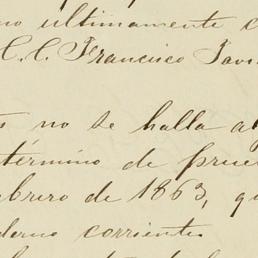 no ultimamente c
C. C. Francisco Javi
s no se halla a
término de prue
ebrero de 1863, qu
derno corriente.